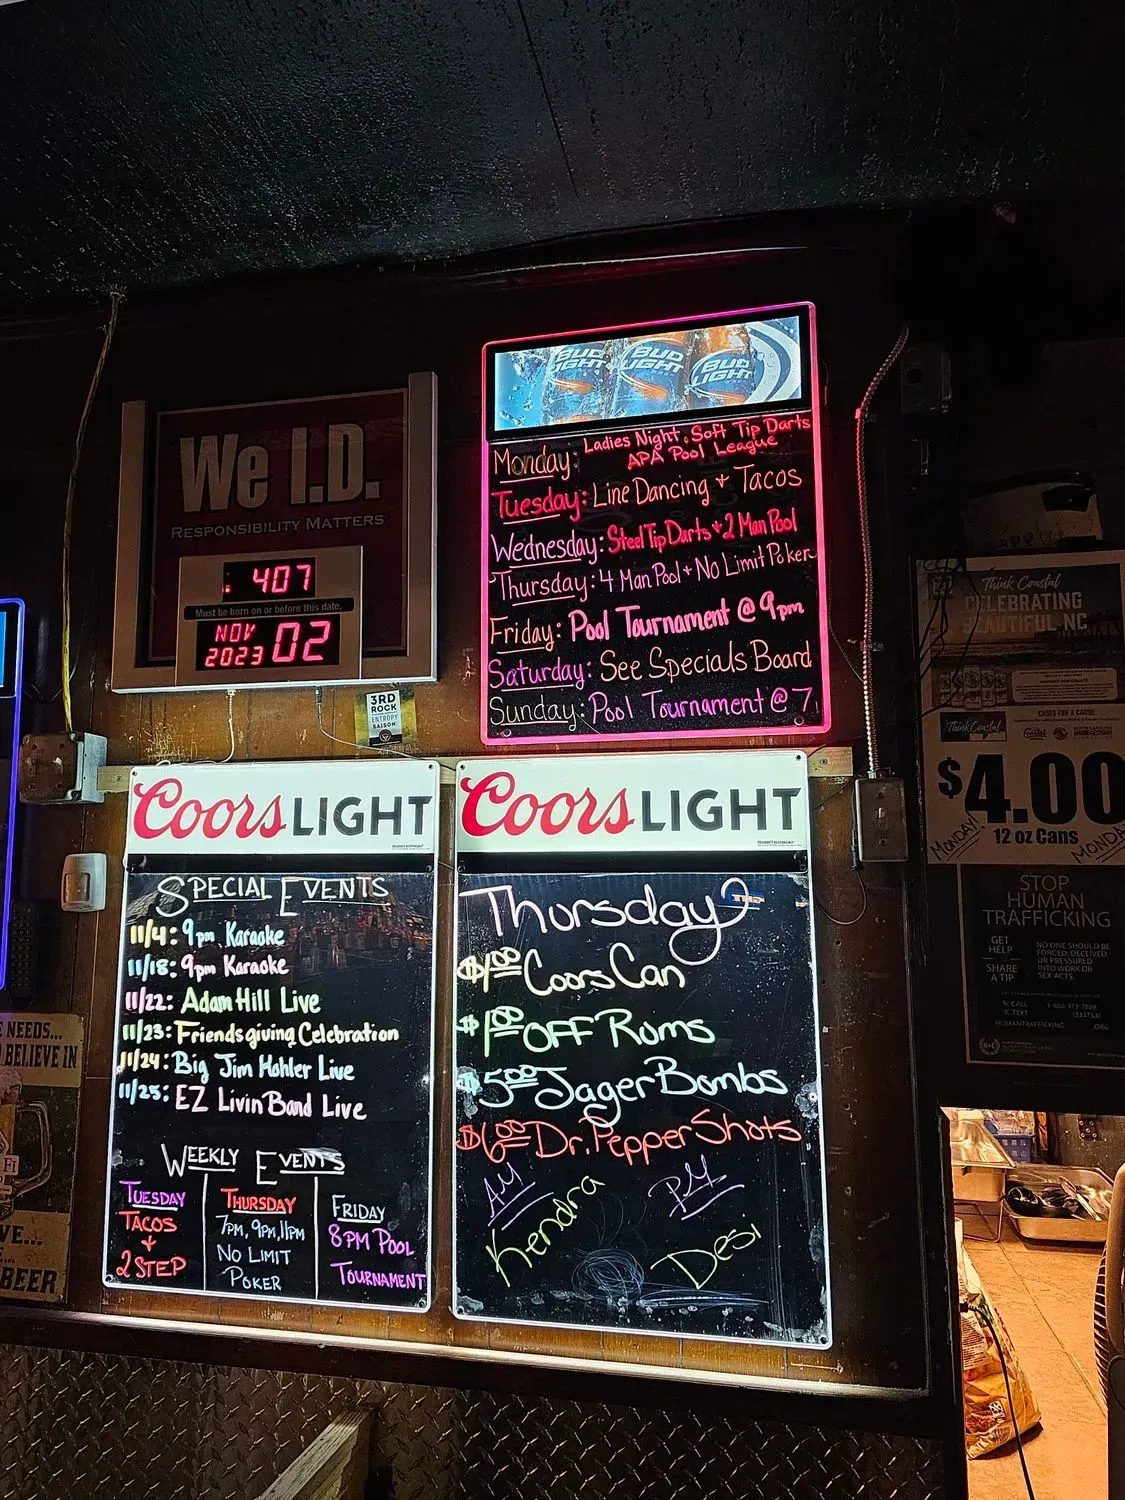 We I.D.
RESPONSIBILITY MATTERS
407
Must be born on or before this date.
NOV
2023 02
3RD
ROCK
ENTROPY
SAISON
BUD LIGHT BUD LIGHT BUD LIGHT
Monday: Ladies Night, Soft Tip Darts
APA Pool League
Tuesday: Line Dancing + Tacos
Wednesday: Steel Tip Darts + 2 Man Pool
Thursday: 4 Man Pool + No Limit Poker
Friday: Pool Tournament @ 9pm
Saturday: See Specials Board
Sunday: Pool Tournament @ 7
Coors LIGHT
SPECIAL EVENTS
11/4: 9pm Karaoke
11/18: 9pm Karaoke
11/22: Adam Hill Live
11/23: Friendsgiving Celebration
11/24: Big Jim Hohler Live
11/25: EZ Livin Band Live
WEEKLY EVENTS
TUESDAY
TACOS
+
2 STEP
THURSDAY
7PM, 9PM, 11PM
NO LIMIT
POKER
FRIDAY
8PM POOL
TOURNAMENT
Coors LIGHT
Thursday
$1.00 Coors Can
$1.00 OFF Rums
$5.00 Jager Bombs
$6.00 Dr. Pepper Shots
AM PM
Kendra Desi
Think Coastal
CELEBRATING
BEAUTIFUL NC
Think Coastal
CASES FOR A CAUSE
$4.00
12 oz Cans
MONDAY! MONDA
STOP
HUMAN
TRAFFICKING
GET
HELP
SHARE
A TIP
NO ONE SHOULD BE
FORCED, DECEIVED
OR PRESSURED
INTO WORK OR
SEX ACTS.
CALL 1-888-373-7888
TEXT
HUMANTRAFFICKING .ORG
E NEEDS...
BELIEVE IN
VE...
BEER